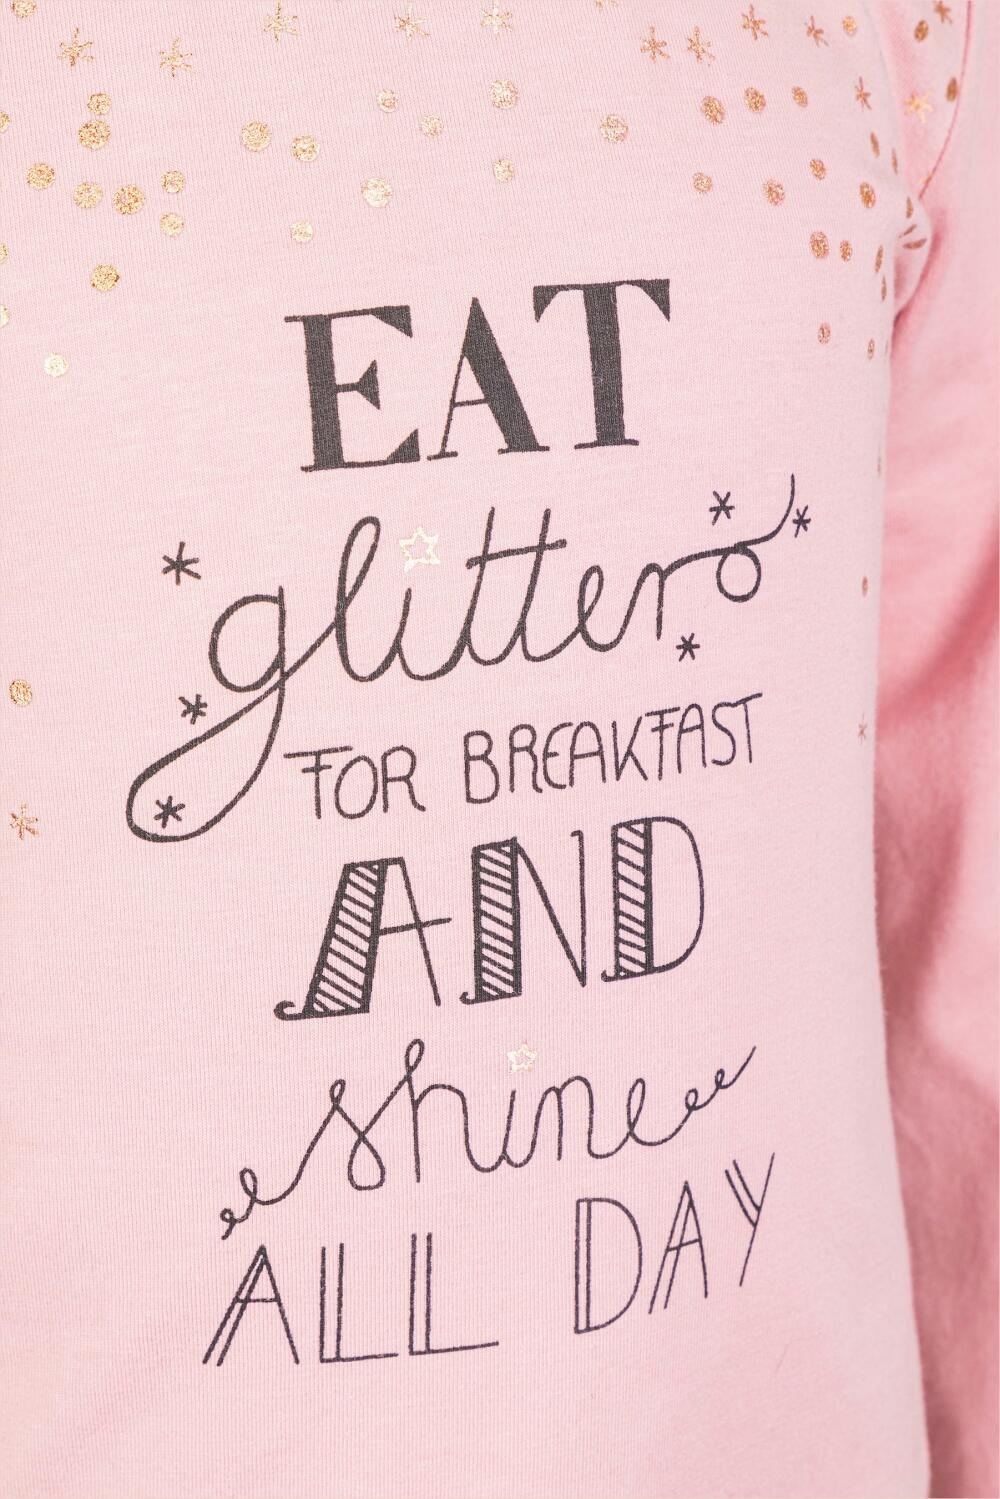 EAT
glitter
FOR BREAKFAST
AND
shine
ALL DAY